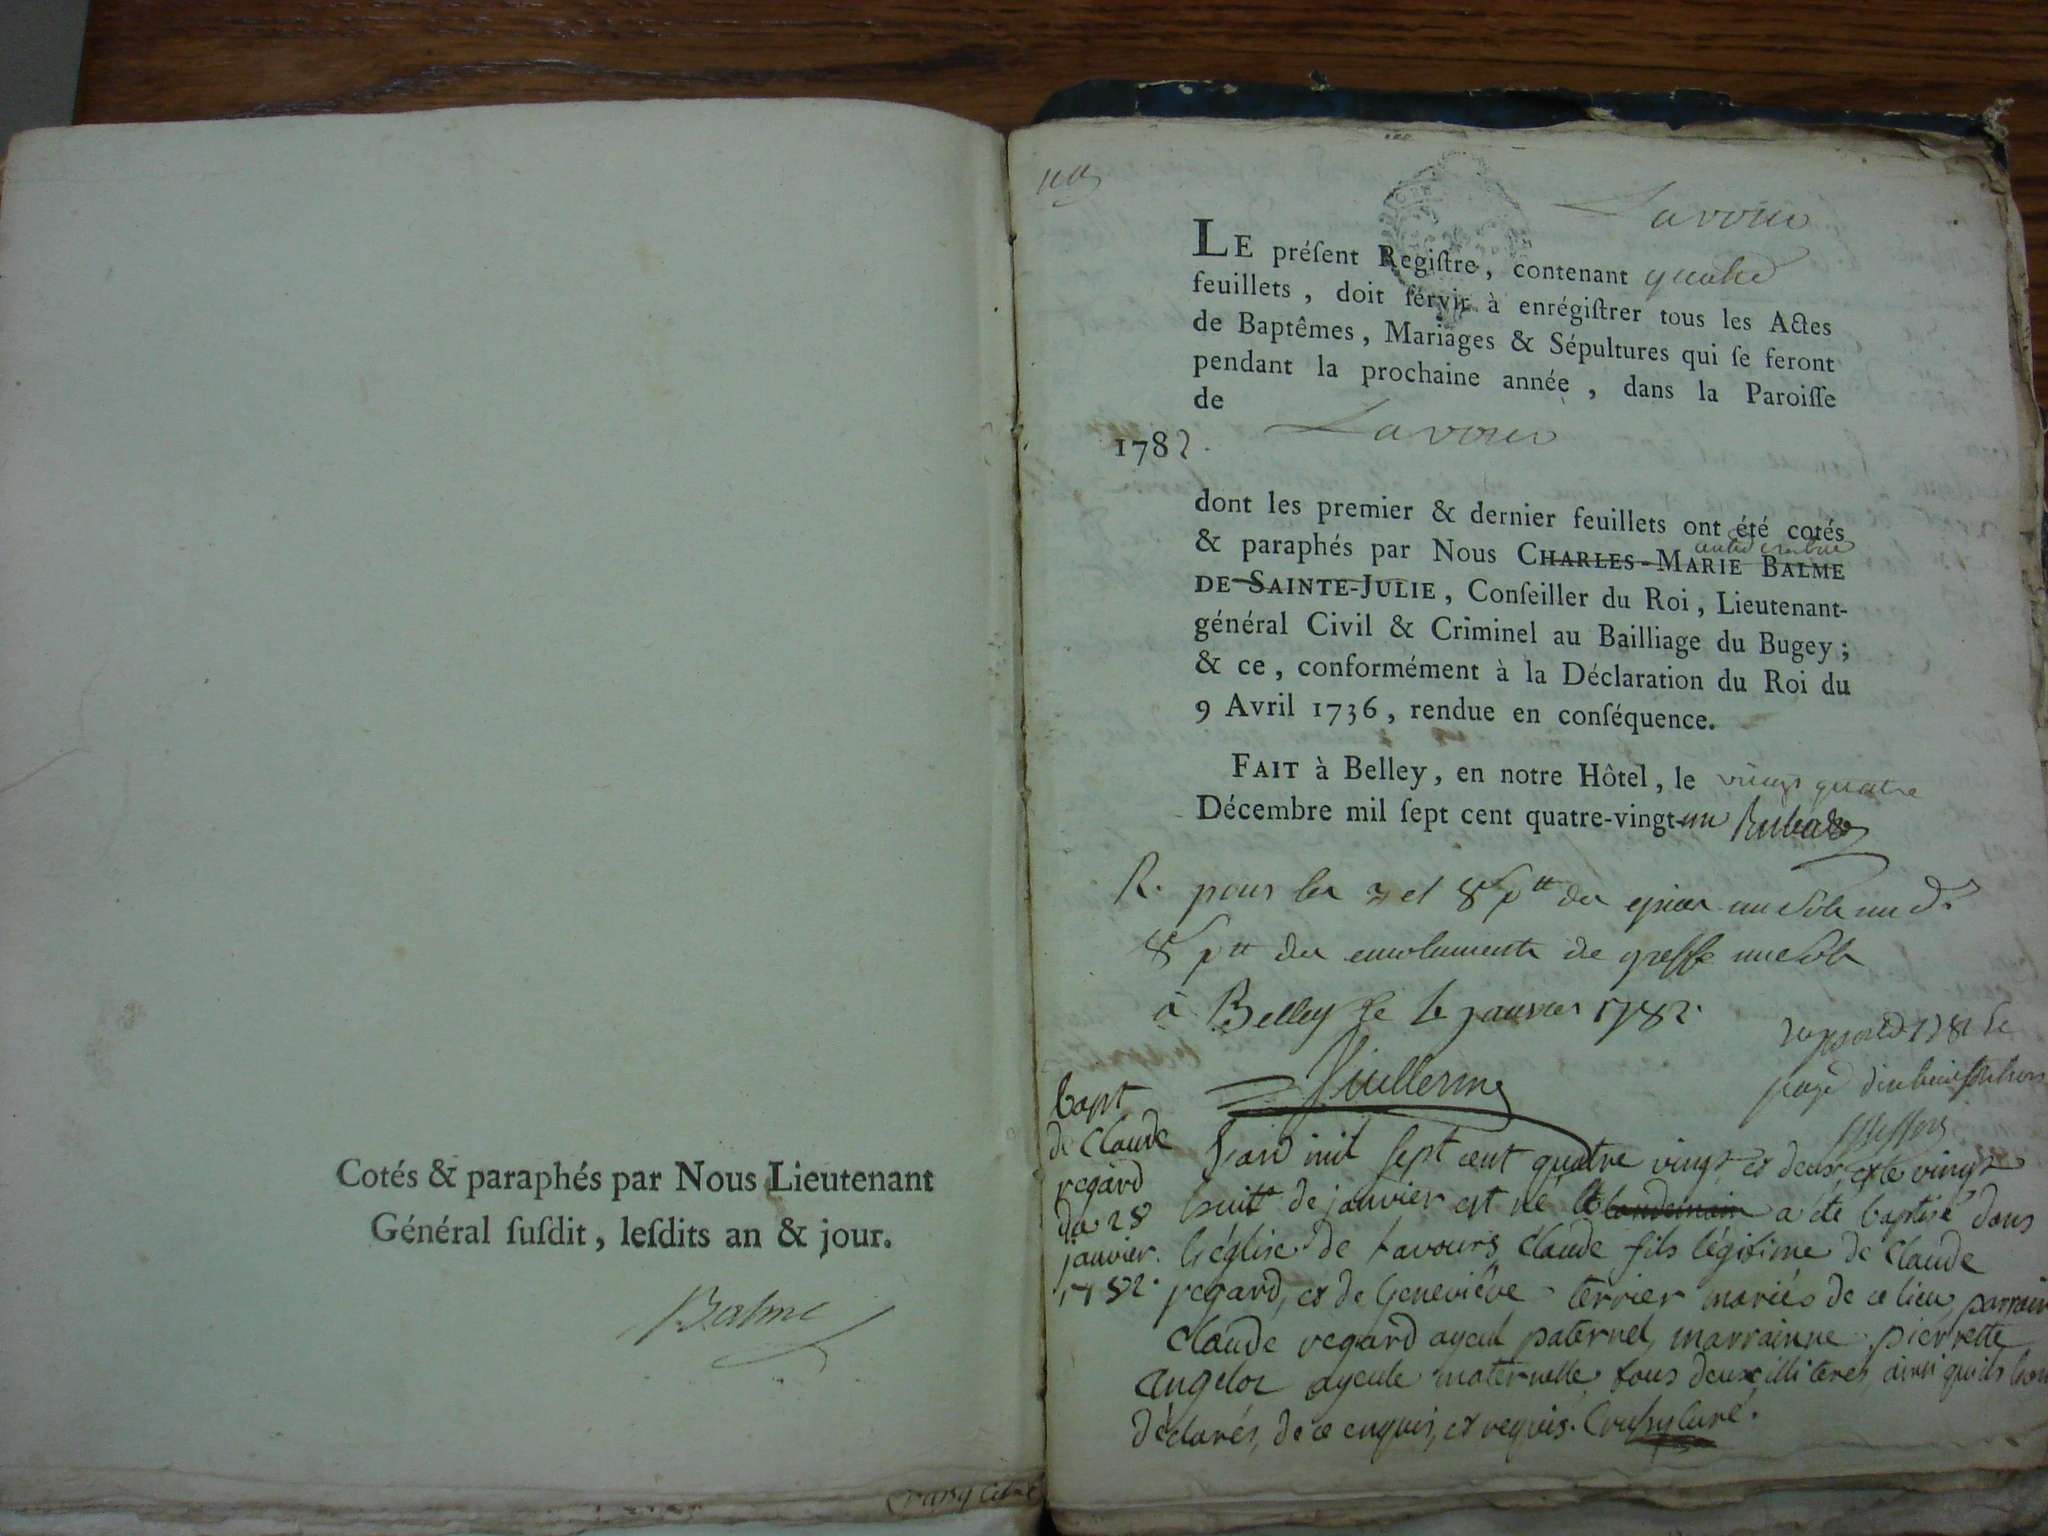 Cotés & paraphés par Nous Lieutenant
Général ſuſdit, leſdits an & jour.
Balme
Lavour
LE préſent Regiſtre, contenant quatre
feuillets, doit ſervir à enrégiſtrer tous les Actes
de Baptêmes, Mariages & Sépultures qui ſe feront
pendant la prochaine année, dans la Paroiſſe
de Lavour
1782.
dont les premier & dernier feuillets ont été cotés
& paraphés par Nous CHARLES-MARIE BALME
DE SAINTE-JULIE, Conſeiller du Roi, Lieutenant-
général Civil & Criminel au Bailliage du Bugey;
& ce, conformément à la Déclaration du Roi du
9 Avril 1736, rendue en conſéquence.
FAIT à Belley, en notre Hôtel, le vingt quatre
Décembre mil ſept cent quatre-vingt-un
R. pour les 3 et 8 des epices un sols un d.
8 des emoluments de greffe un sols
à Belley le janvier 1782.
Guillerme
bapt
de Claude
regard
du 28
janvier.
1782.
L'an mil sept cent quatre vingt et deux, et le vingt
huitt de janvier est né le landemain a été baptisé dans
l'église de Lavours Claude fils légitime de Claude
regard, et de Geneviève terrier mariés de ce lieu, parrain
Claude regard ayeul paternel, marrainne pierrette
angeloz ayeule maternelle tous deux illiteres, ainsi quils l'ont
déclarés, de ce enquis, et requis. Crussy curé.